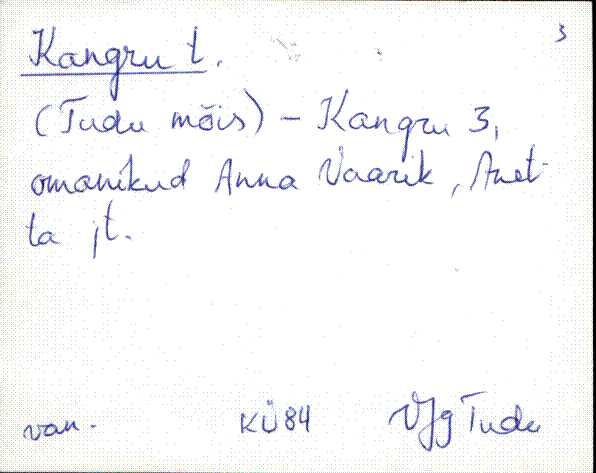 3
Kangru t.
(Tudu mõis) – Kangru 3,
omanikud Anna Vaarik, Anet-
ta jt.
van. KÜ84 VJg Tudu